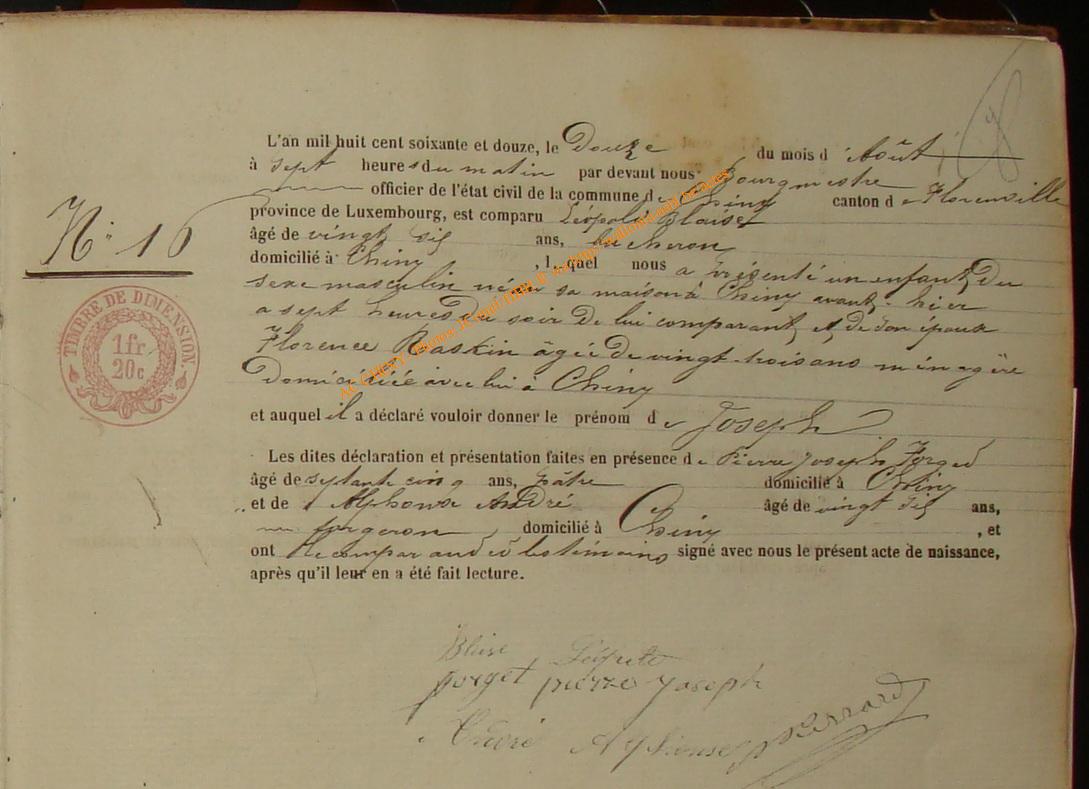 L'an mil huit cent soixante et douze, le Douze du mois d'Août
à sept heures du matin par devant nous Bourgmestre
officier de l'état civil de la commune de Chiny canton de Florenville
province de Luxembourg, est comparu Léopold Blaise
N° 16
âgé de vingt six ans, bucheron
domicilié à Chiny, lequel nous a présenté un enfant du
sexe masculin né en sa maison à Chiny avant-hier
a sept heures du soir de lui comparant et de son épouse
Florence Raskin âgée de vingt trois ans ménagère
Domiciliée avec lui à Chiny
TIMBRE DE DIMENSION.
1fr
20c
et auquel il a déclaré vouloir donner le prénom de Joseph
Les dites déclaration et présentation faites en présence de Pierre Joseph Forget
âgé de septante cinq ans, pâtre domicilié à Chiny
et de Alphonse André âgé de vingt six ans,
forgeron, domicilié à Chiny, et
ont le comparant et les témoins signé avec nous le présent acte de naissance,
après qu'il leur en a été fait lecture.
Blaise
forget pierre joseph
André Alphonse Pierrard